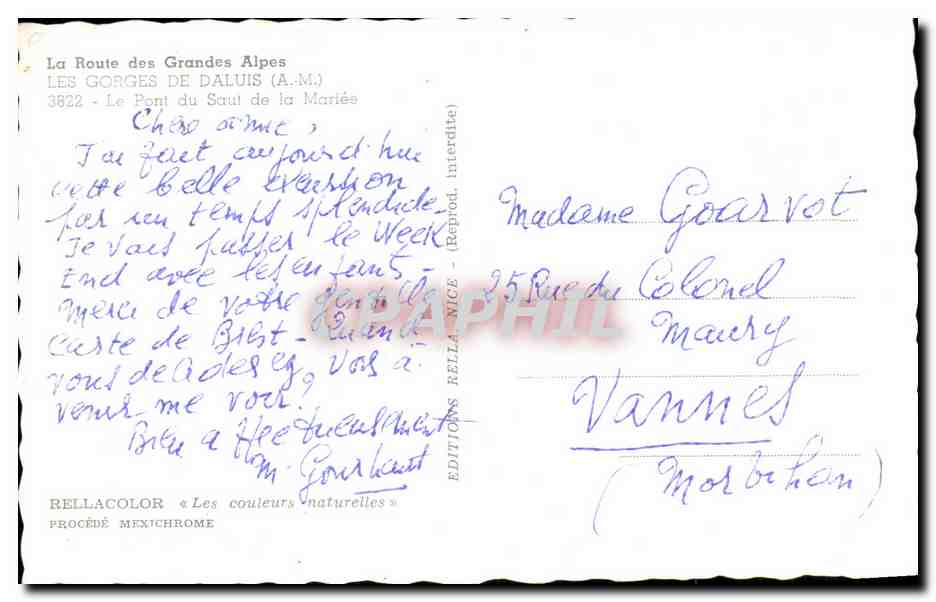 La Route des Grandes Alpes
LES GORGES DE DALUIS (A.-M.)
3822 - Le Pont du Saut de la Mariée
Chère amie,
J'ai fait aujourd'hui
cette belle excursion
par un temps splendide -
Je vais passer le Week
End avec les enfants -
Merci de votre gentille
carte de Brest - Quand
vous deciderez, vous à
venir me voir?
Bien affectueusement
M. Gourhant
RELLACOLOR « Les couleurs naturelles »
PROCÉDÉ MEXICHROME
EDITIONS RELLA, NICE - (Reprod. interdite)
Madame Goarvot
25 Rue du Colonel
Maury
Vannes
(Morbihan)
CPAPHIL